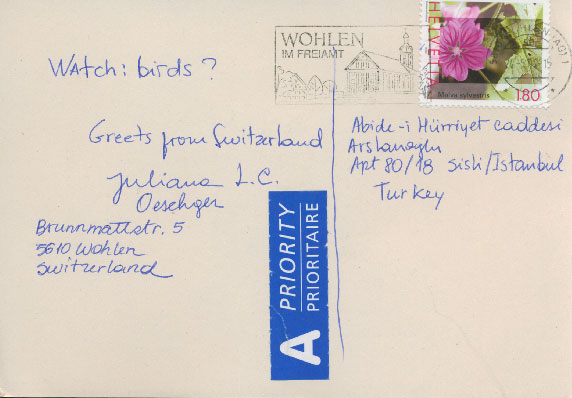 Watch: birds?
Greets from Switzerland
Juliana L.C.
Oeschger
Brunnmattstr. 5
5610 Wohlen
Switzerland
WOHLEN
IM FREIAMT
HELVETIA
Malva sylvestris
180
Abide-i Hürriyet caddesi
Arslanoglu
Apt 80/18 Sisli/Istanbul
Turkey
A PRIORITY
PRIORITAIRE